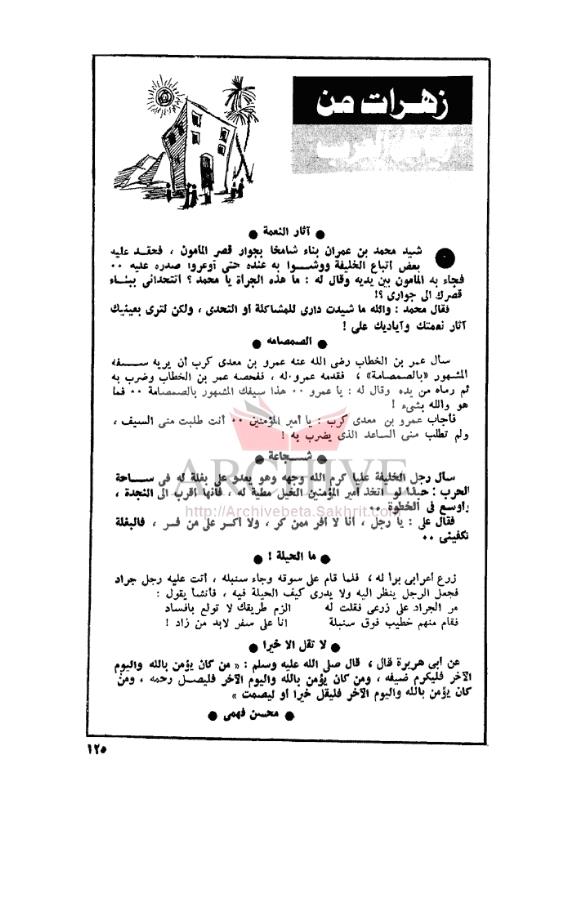 زهرات من
● آثار النعمة ●
شيد محمد بن عمران بناء شامخا بجوار قصر المأمون ، فحقد عليه
بعض أتباع الخليفة ووشوا به عنده حتى أوغروا صدره عليه ٠٠
فجاء به المأمون بين يديه وقال له : ما هذه الجرأة يا محمد ؟ أتتحدانى ببناء
قصرك الى جوارى ؟!
فقال محمد : والله ما شيدت دارى للمشاكلة أو التحدى ، ولكن لترى بعينيك
آثار نعمتك وأياديك على !
● الصمصامه ●
سأل عمر بن الخطاب رضى الله عنه عمرو بن معدى كرب أن يريه سيفه
المشهور «بالصمصامة» ، فقدمه عمرو له ، ففحصه عمر بن الخطاب وضرب به
ثم رماه من يده وقال له : يا عمرو ٠٠ هذا سيفك المشهور بالصمصامة ٠٠ فما
هو والله بشىء !
فأجاب عمرو بن معدى كرب : يا أمير المؤمنين ٠٠ أنت طلبت منى السيف ،
ولم تطلب منى الساعد الذى يضرب به !
● شجاعة ●
ARCHIVE
http://Archivebeta.Sakhrit.com
سأل رجل الخليفة عليا كرم الله وجهه وهو يعدو على بغلة له فى ساحة
الحرب : حبذا لو اتخذ أمير المؤمنين الخيل مطية له ، فانها أقرب الى النجدة ،
وأوسع فى الخطوة ٠٠
فقال على : يا رجل ، أنا لا أفر ممن كر ، ولا أكر على من فر ، فالبغلة
تكفينى ٠٠
● ما الحيلة ! ●
زرع أعرابى برا له ، فلما قام على سوقه وجاء سنبله ، أتت عليه رجل جراد
فجعل الرجل ينظر اليه ولا يدرى كيف الحيلة فيه ، فأنشأ يقول :
مر الجراد على زرعى فقلت له الزم طريقك لا تولع بافساد
فقام منهم خطيب فوق سنبلة انا على سفر لابد من زاد !
● لا تقل الا خيرا ●
عن أبى هريرة قال ، قال صلى الله عليه وسلم : « من كان يؤمن بالله واليوم
الآخر فليكرم ضيفه ، ومن كان يؤمن بالله واليوم الآخر فليصل رحمه ، ومن
كان يؤمن بالله واليوم الآخر فليقل خيرا أو ليصمت »
● محسن فهمى ●
١٢٥